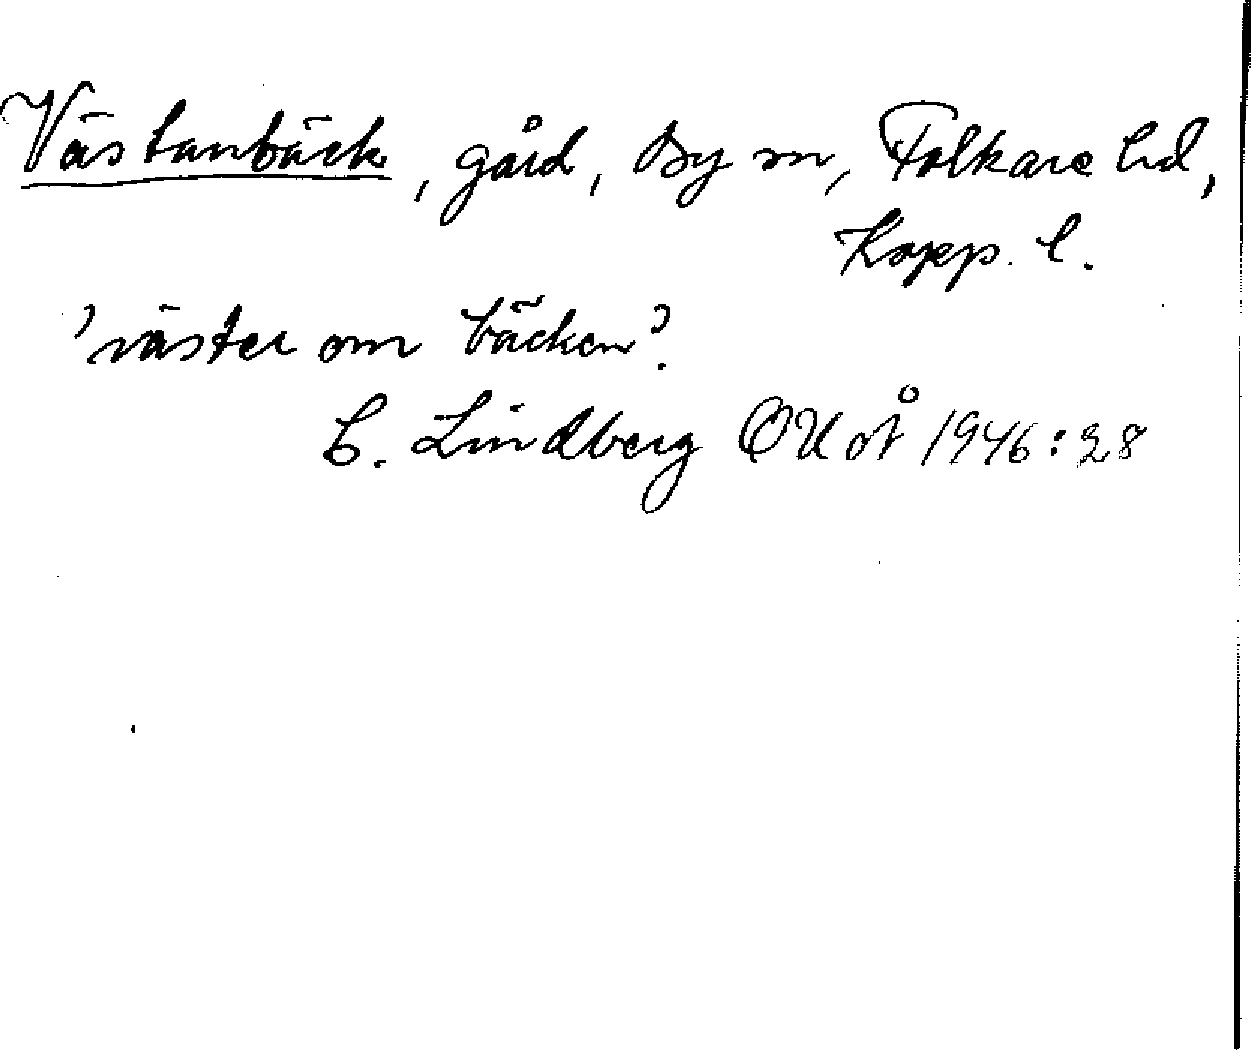 Västanbäck, gård, By sn, Folkare hd,
Kopp. l.
'väster om bäcken'.
C. Lindberg OUoÅ 1946:28